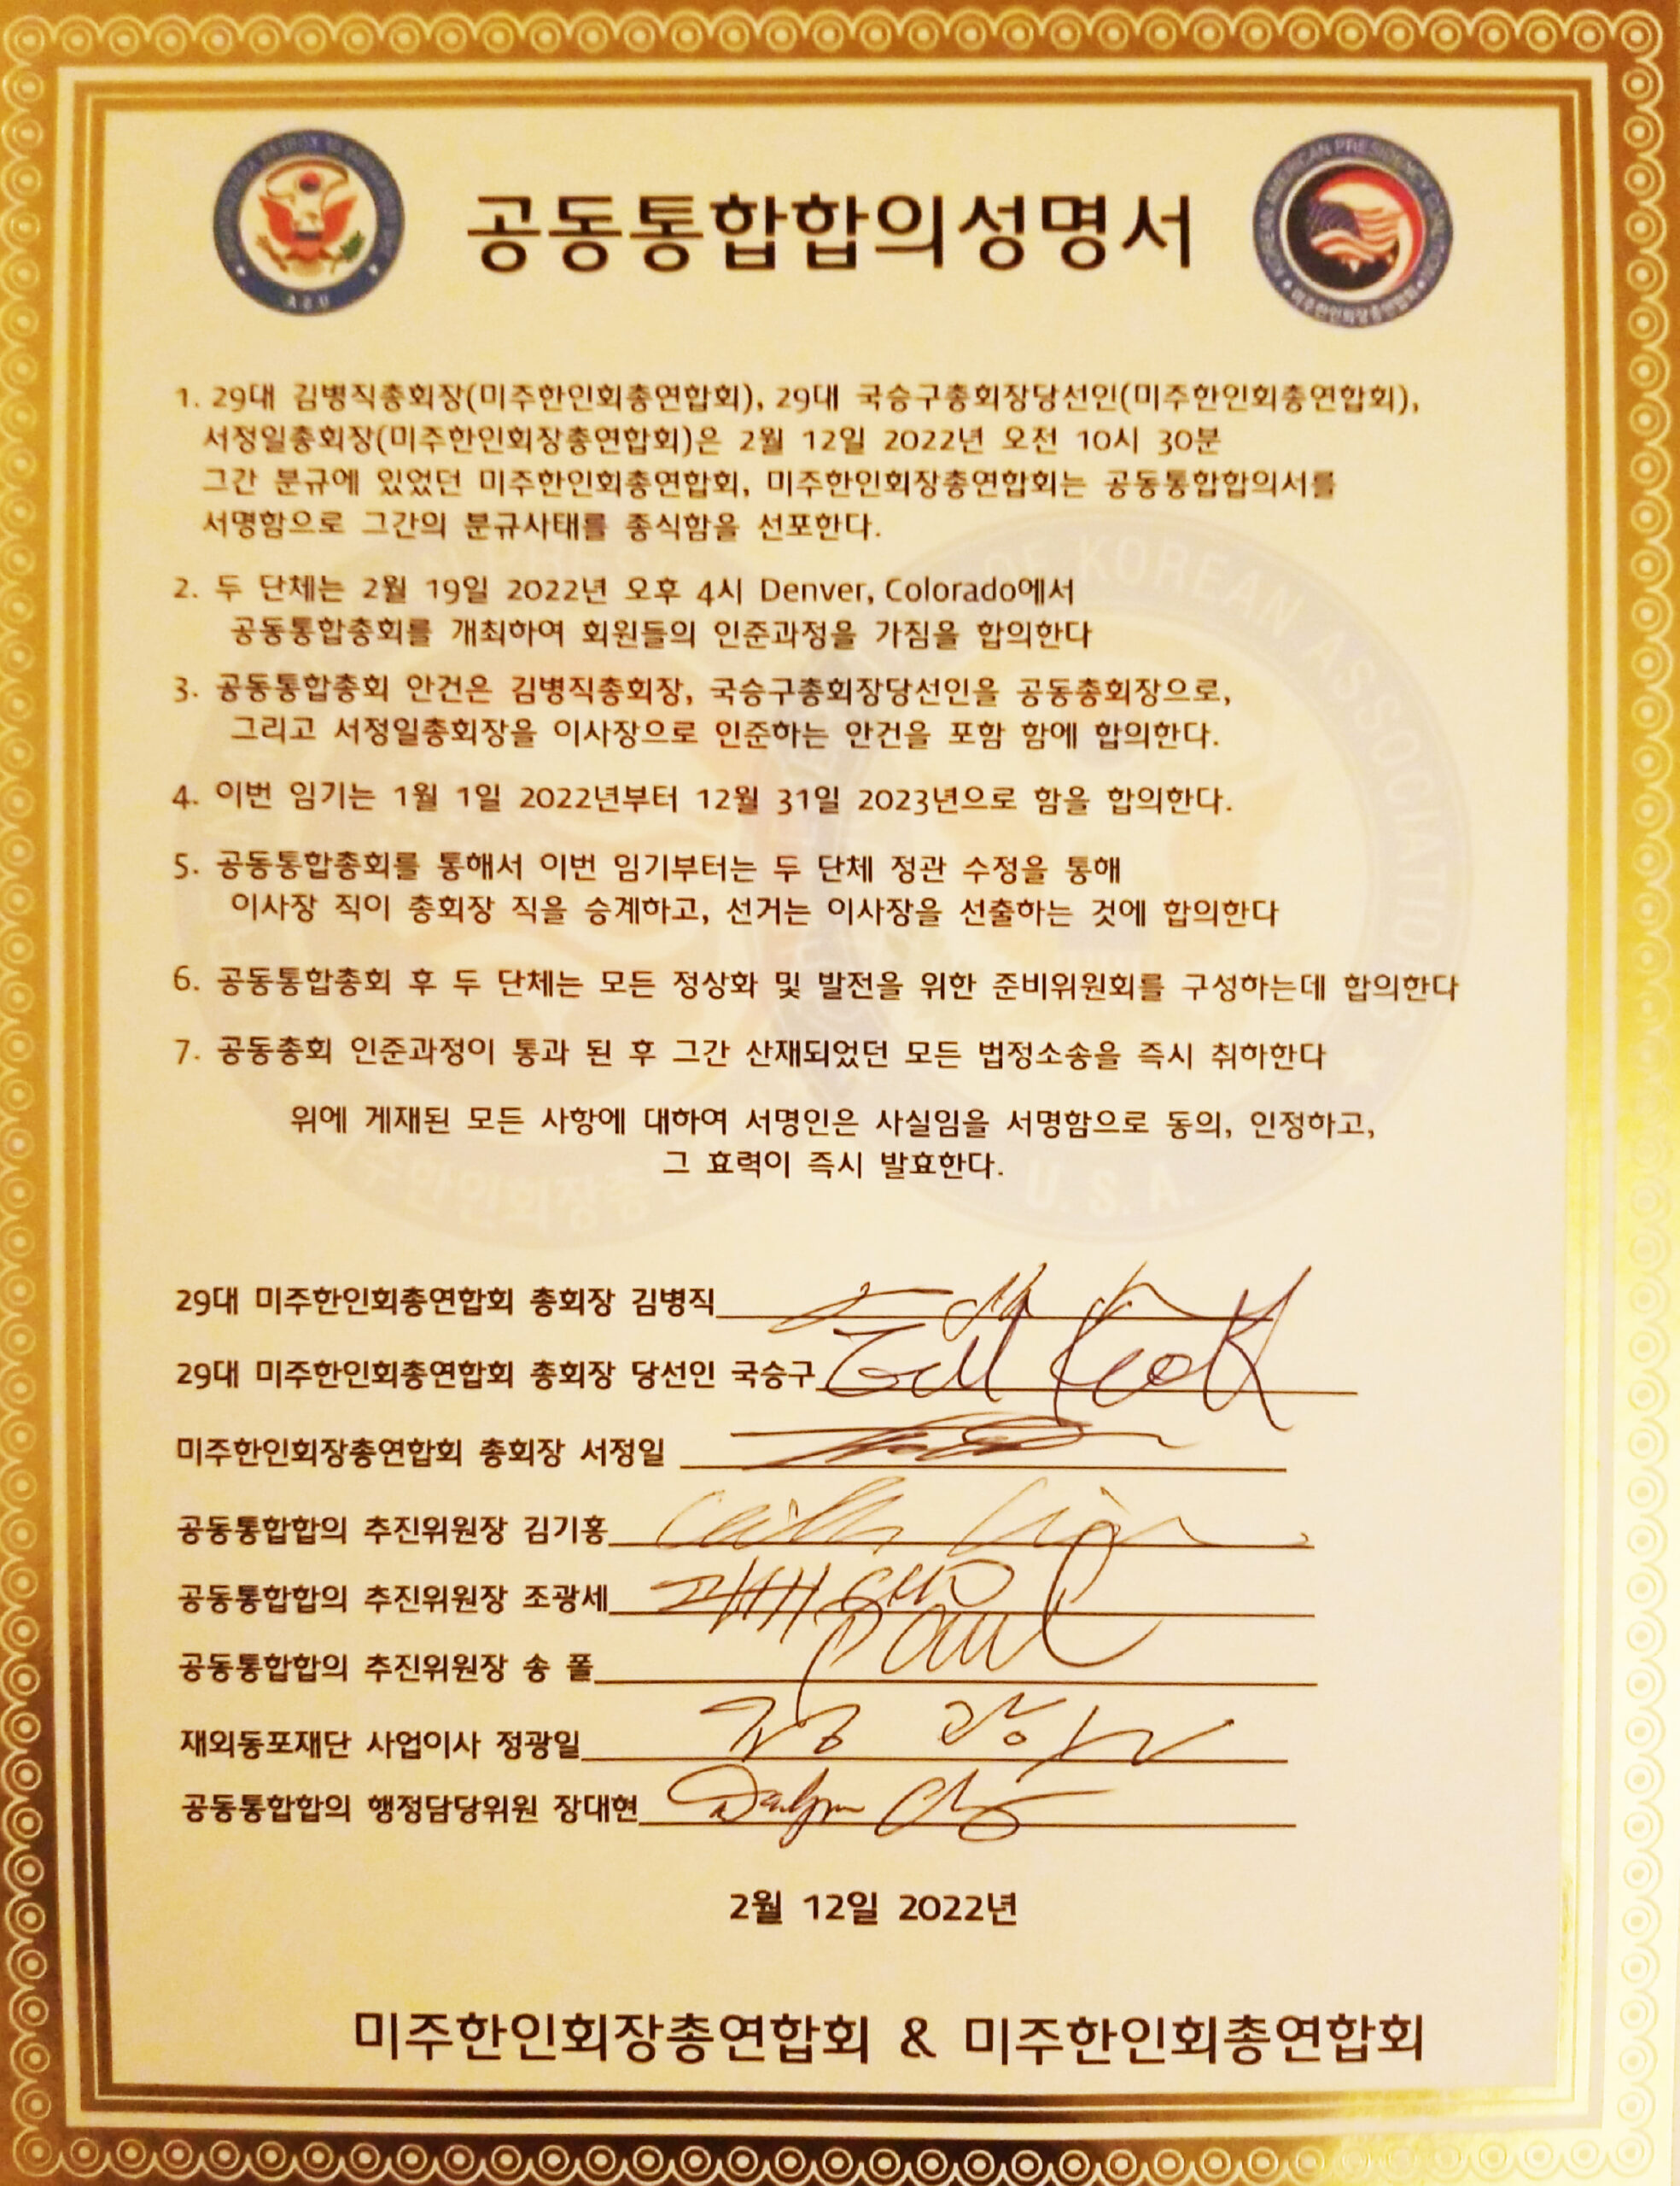 공동통합합의성명서
A.S.U
KOREAN AMERICAN PRESIDENCY
미주한인회장총연합회
1. 29대 김병직총회장(미주한인회총연합회), 29대 국승구총회장당선인(미주한인회총연합회),
서정일총회장(미주한인회장총연합회)은 2월 12일 2022년 오전 10시 30분
그간 분규에 있었던 미주한인회총연합회, 미주한인회장총연합회는 공동통합합의서를
서명함으로 그간의 분규사태를 종식함을 선포한다.
2. 두 단체는 2월 19일 2022년 오후 4시 Denver, Colorado에서
공동통합총회를 개최하여 회원들의 인준과정을 가짐을 합의한다
3. 공동통합총회 안건은 김병직총회장, 국승구총회장당선인을 공동총회장으로,
그리고 서정일총회장을 이사장으로 인준하는 안건을 포함 함에 합의한다.
4. 이번 임기는 1월 1일 2022년부터 12월 31일 2023년으로 함을 합의한다.
5. 공동통합총회를 통해서 이번 임기부터는 두 단체 정관 수정을 통해
이사장 직이 총회장 직을 승계하고, 선거는 이사장을 선출하는 것에 합의한다
6. 공동통합총회 후 두 단체는 모든 정상화 및 발전을 위한 준비위원회를 구성하는데 합의한다
7. 공동총회 인준과정이 통과 된 후 그간 산재되었던 모든 법정소송을 즉시 취하한다
위에 게재된 모든 사항에 대하여 서명인은 사실임을 서명함으로 동의, 인정하고,
그 효력이 즉시 발효한다.
OF KOREAN ASSOCIATIONS
U. S. A.
미주한인회장총
29대 미주한인회총연합회 총회장 김병직
29대 미주한인회총연합회 총회장 당선인 국승구
미주한인회장총연합회 총회장 서정일
공동통합합의 추진위원장 김기홍
공동통합합의 추진위원장 조광세
공동통합합의 추진위원장 송 폴 Paul
재외동포재단 사업이사 정광일 정 광 일
공동통합합의 행정담당위원 장대현
2월 12일 2022년
미주한인회장총연합회 & 미주한인회총연합회